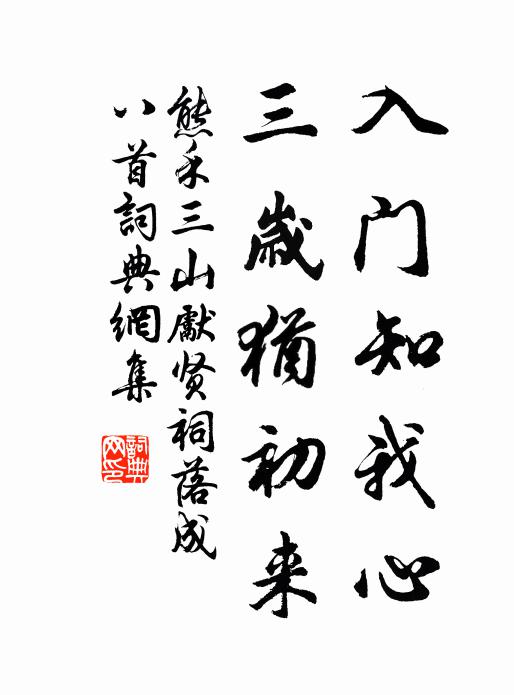 入门知我心
三歲猶初来
熊禾三山獻贤祠落成
八首詞典網集
詞典网印